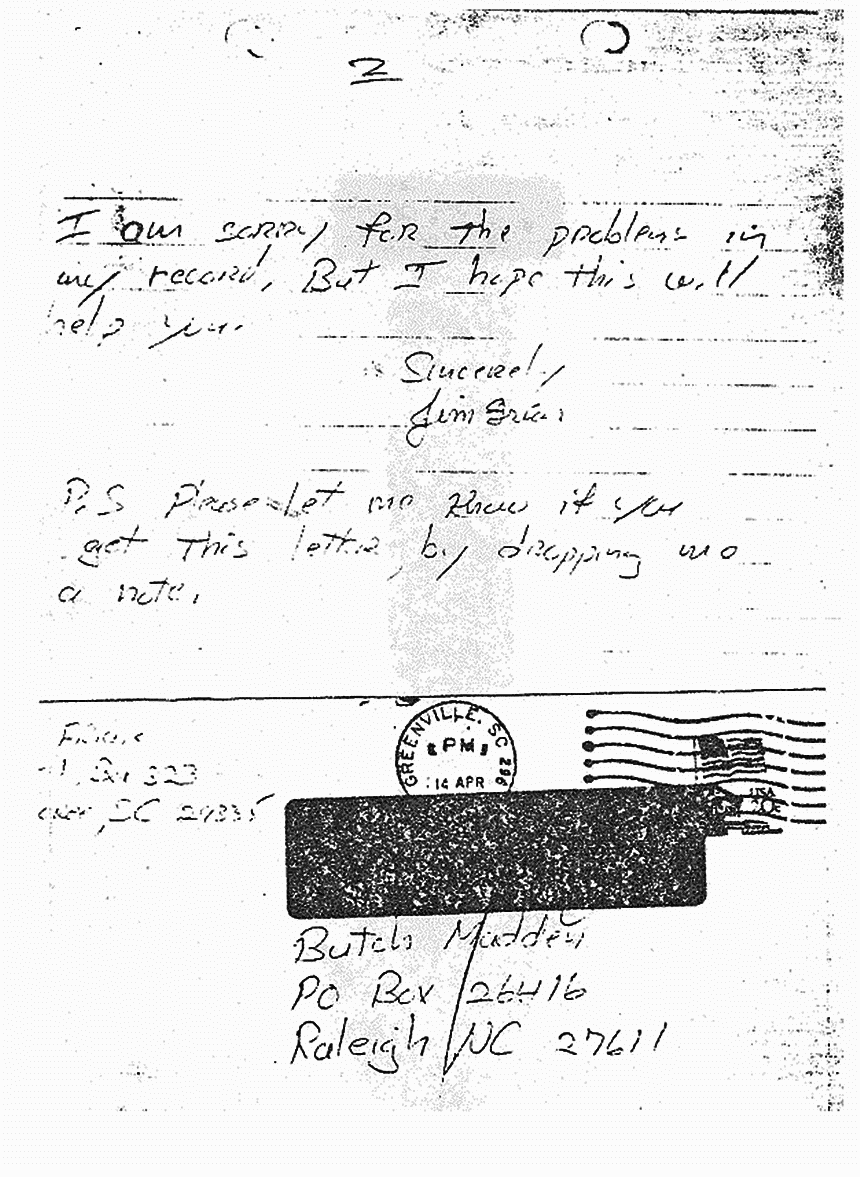 2
I am sorry for the problems in
my record. But I hope this will
help you.
Sincerely
Jim
P.S Please let me know if you
get this letter, by dropping me
a note.
GREENVILLE, SC 296
PM
14 APR
USA
323
SC 29335
Butch Madden
PO Box 26416
Raleigh NC 27611